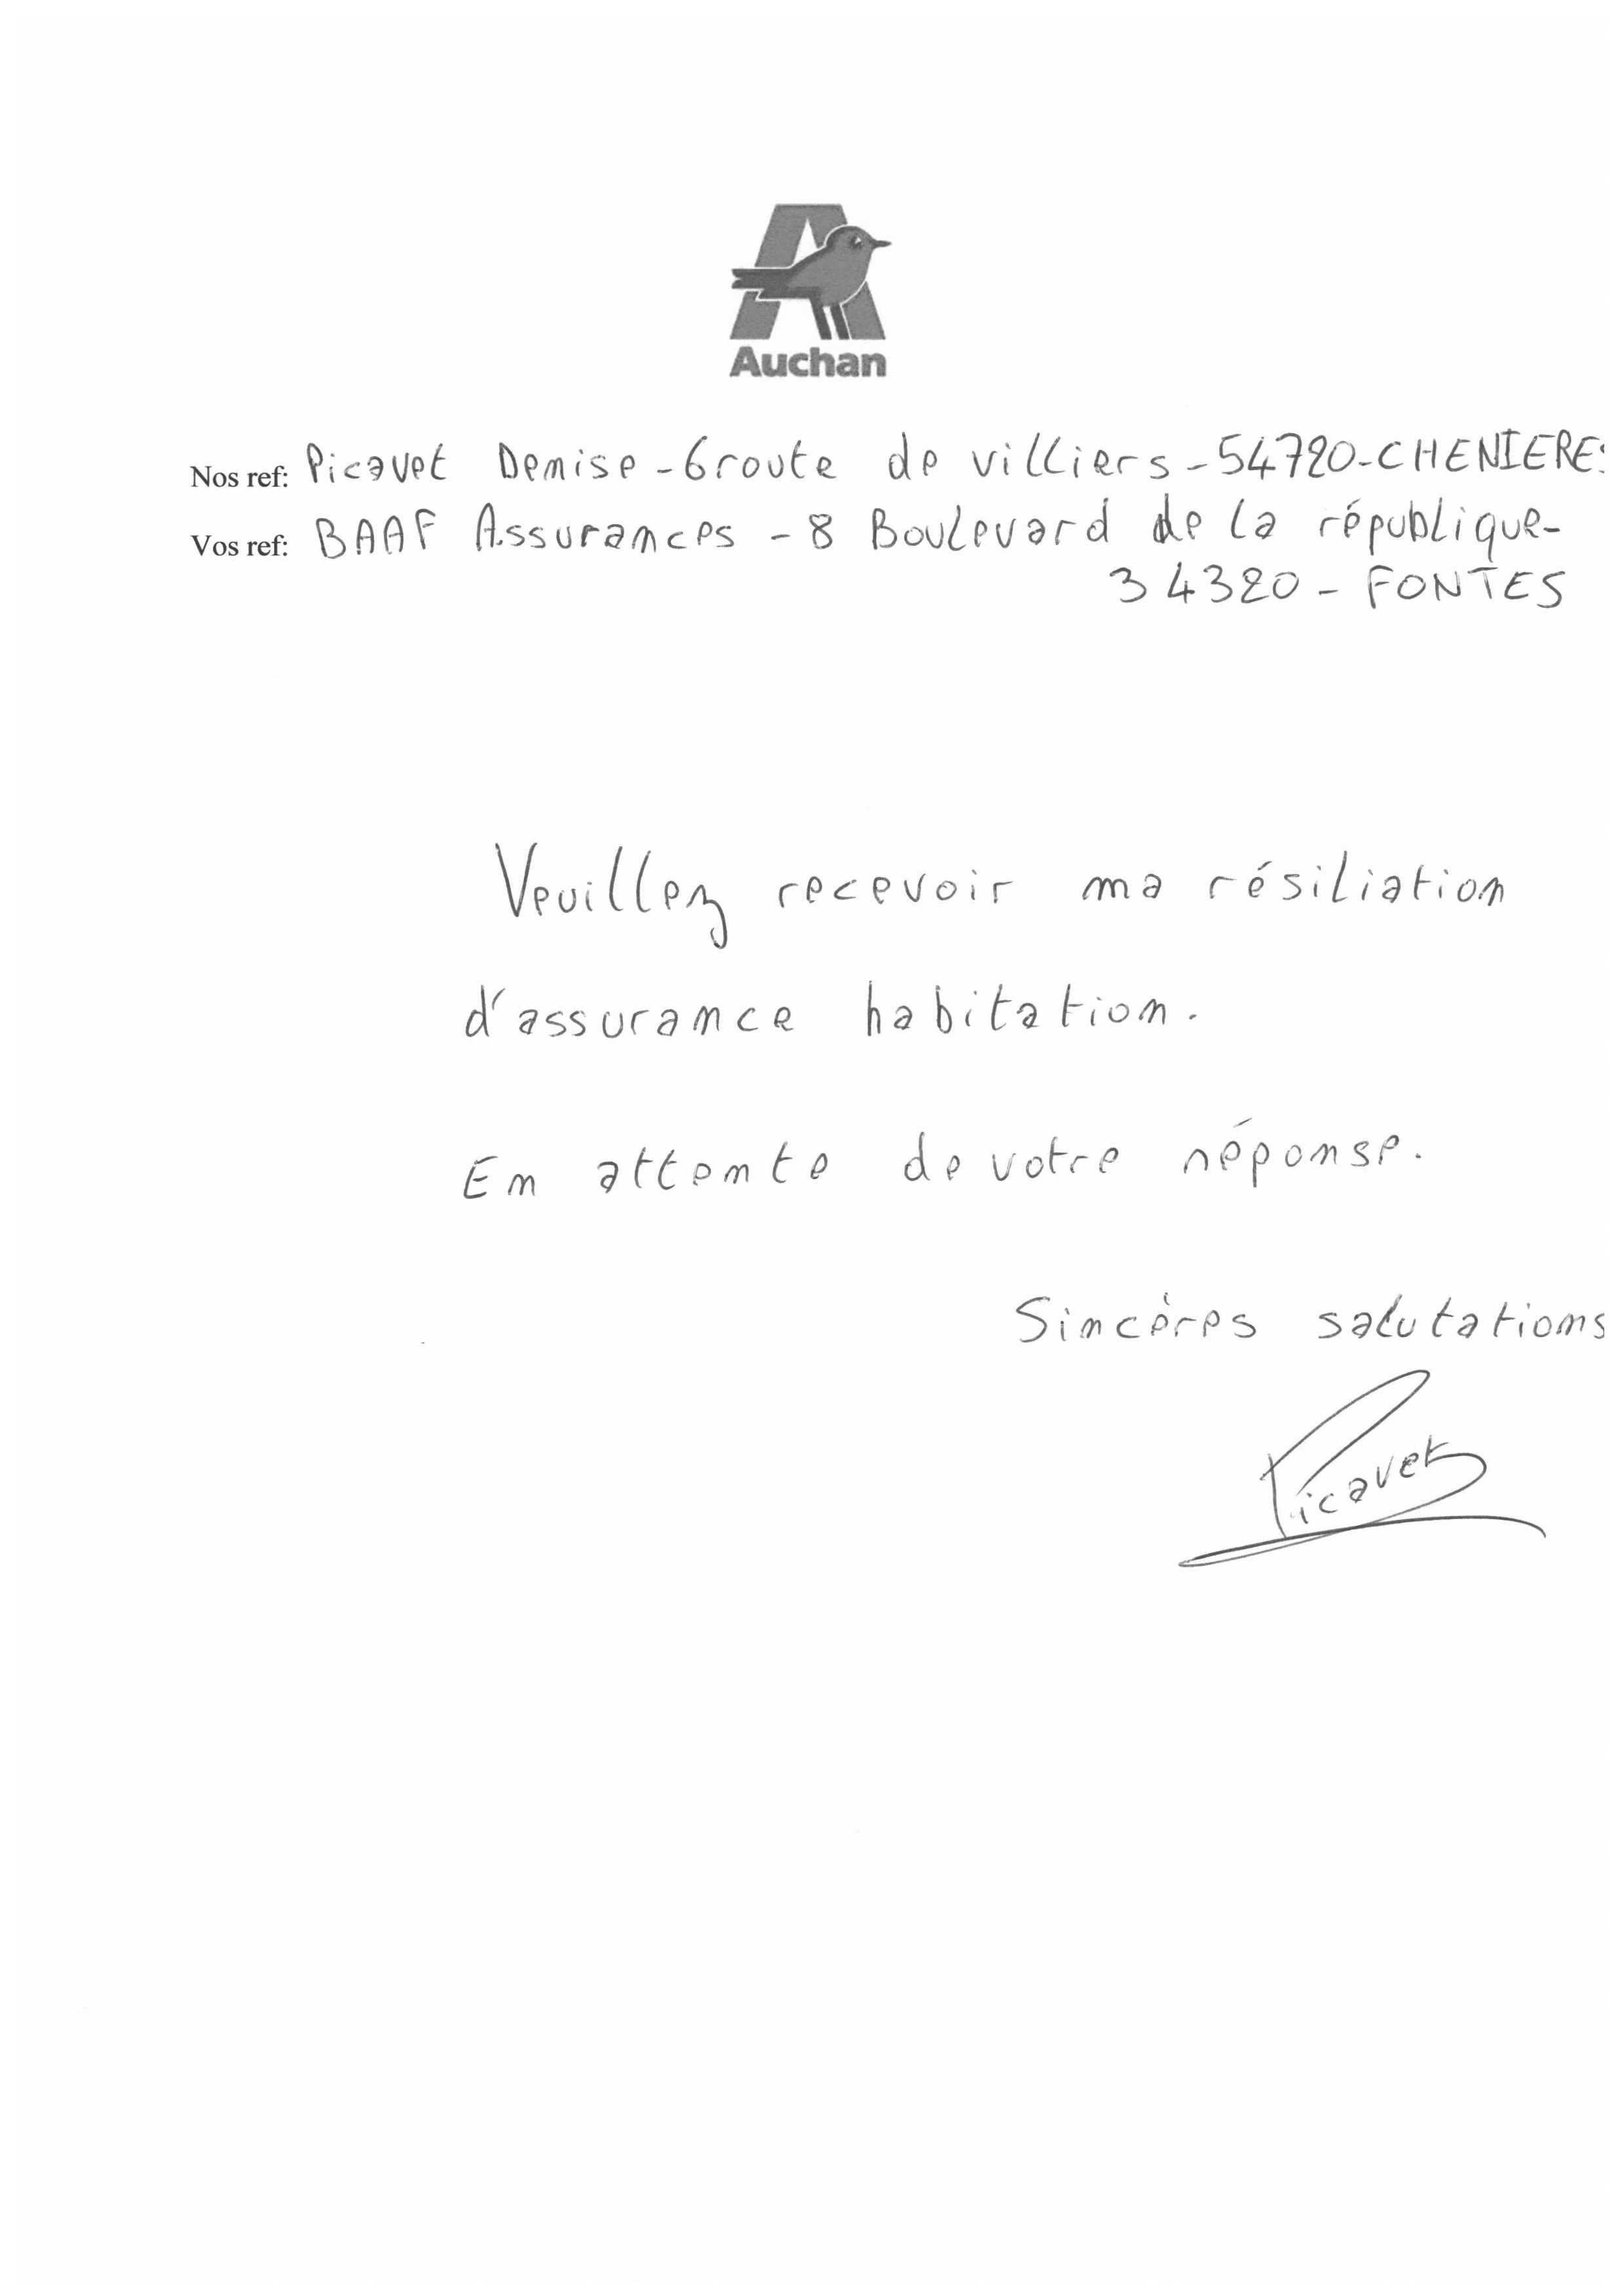 Auchan
Nos ref: Picavet Denise - 6 route de villiers - 54720 - CHENIERES
Vos ref: BAAF Assurances - 8 Boulevard de la république -
34320 - FONTES
Veuillez recevoir ma résiliation
d'assurance habitation.
En attente de votre réponse.
Sincères salutations
Picavet